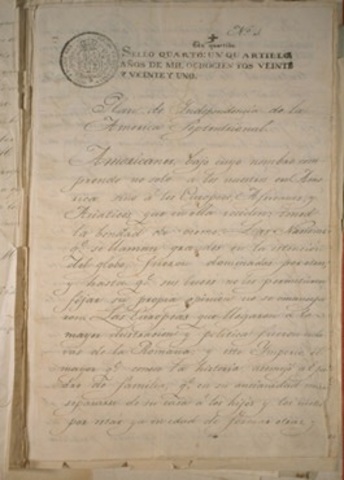 Nº 1
Un quartillo
SELLO QUARTO: UN QUARTILLO
AÑOS DE MIL OCHOCIENTOS VEINTE
Y VEINTE Y UNO.
Plan de Independencia de la
America Septentrional.
Americanos, bajo cuyo nombre com
prendo no solo á los nacidos en Ame
rica, sino á los Europeos, Africanos, y
Asiaticos, que en ella residen: tened
la bondad de oirme. Las Naciones
qe. se llaman grandes en la extension
del globo, fueron dominadas por otras;
y hasta qe. sus luces no les permitieron
fijar su propia opinion no se emancipa
ron. Las Europeas que llegaron á la
mayor ilustracion y politica, fueron escla
vas de la Romana; y este Imperio, el
mayor qe. conoce la historia, asemejó al pa
dre de familia, qe. en su ancianidad mira
separarse de su casa á los hijos y los nietos
por estar ya en edad de formar otras,